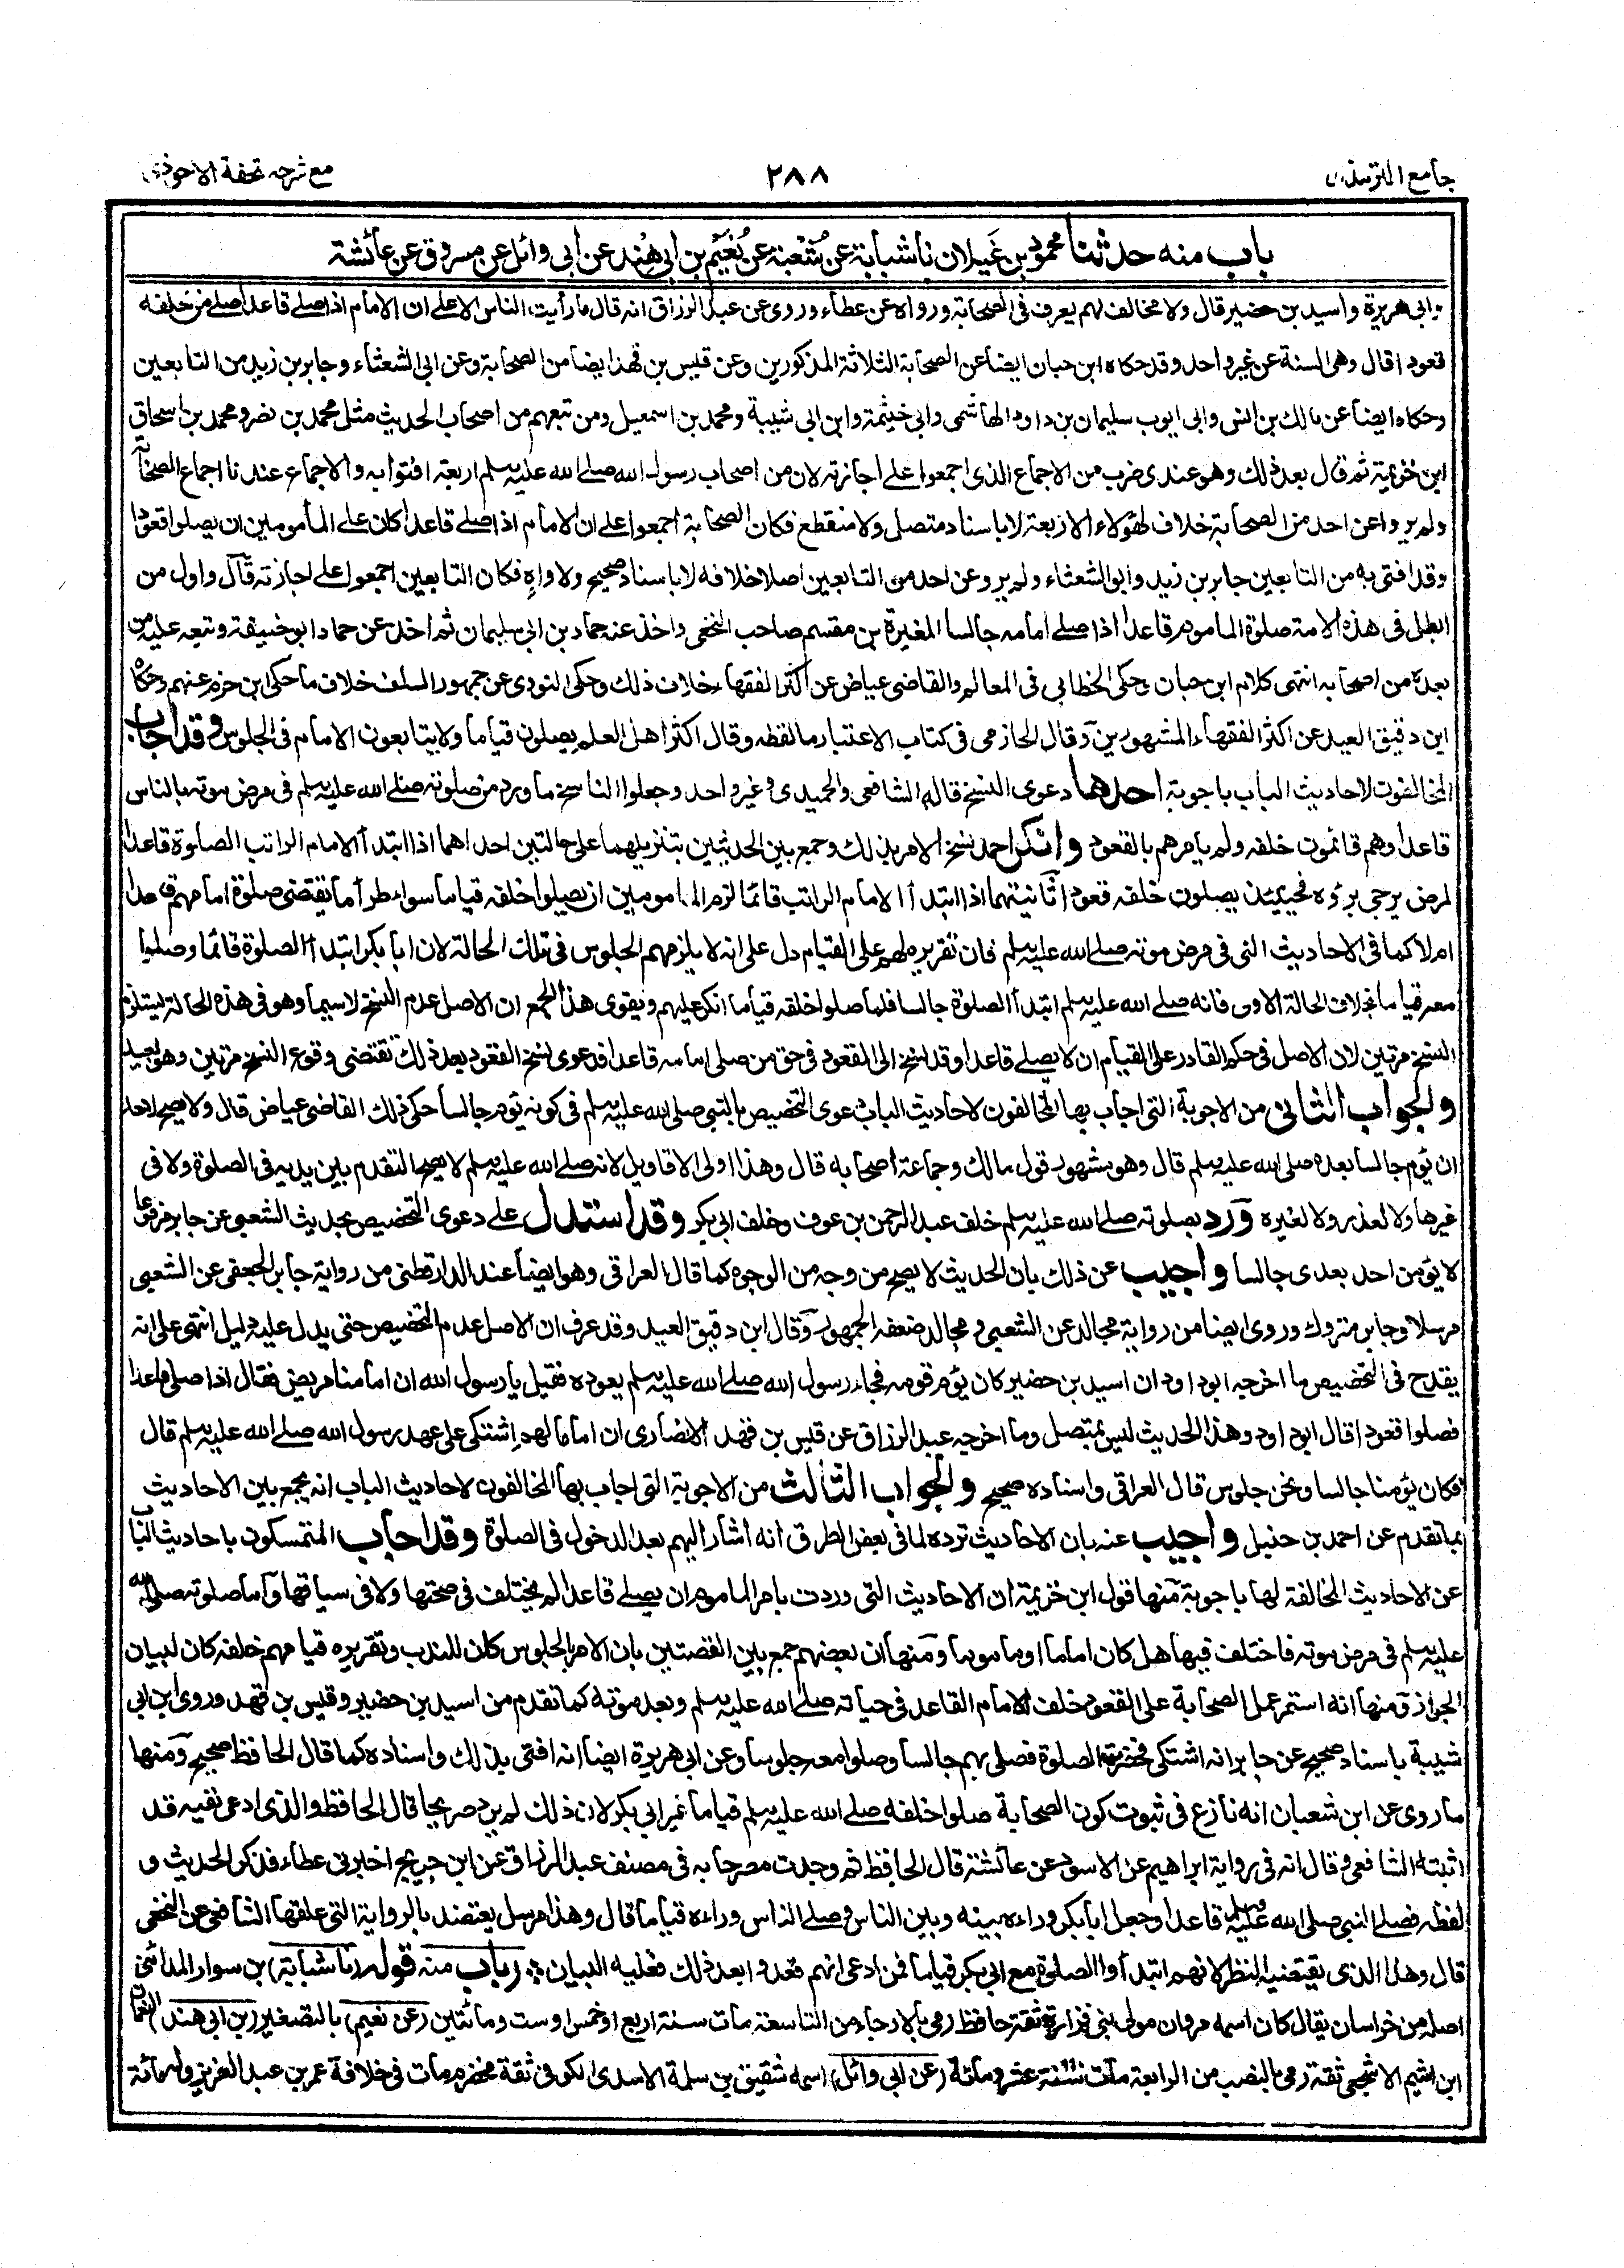 جامع الترمذى
٢٨٨
مع شرحه تحفة الاحوذى
باب منه حدثنا محمود بن غَيلان نا شبابة عن شُعْبة عن نُعَيْم بن ابى هِنْد عن ابى وائل عن مسروق عن عائشة
وابى هريرة واسيد بن حضير قال ولا مخالف لهم يعرف فى الصحابة ورواه عن عطاء وروى عن عبد الرزاق انه قال ما رأيت الناس الا على ان الامام اذا صلى قاعدا صلى من خلفه
قعودا قال وهى السنة عن غير واحد وقد حكاه ابن حبان ايضا عن الصحابة الثلاثة المذكورين وعن قيس بن قهد ايضا من الصحابة وعن ابى الشعثاء وجابر بن زيد من التابعين
وحكاه ايضا عن مالك بن انس وابى ايوب سليمان بن داود الهاشمى وابى خيثمة وابن ابى شيبة ومحمد بن اسمعيل ومن تبعهم من اصحاب الحديث مثل محمد بن نصر ومحمد بن اسحاق
ابن خزيمة ثم قال بعد ذلك وهو عندى ضرب من الاجماع الذى اجمعوا على اجازته لان من اصحاب رسول الله صلى الله عليه وسلم اربعة افتوا به والاجماع عندنا اجماع الصحابة
ولم يروا عن احد من الصحابة خلاف لهؤلاء الاربعة لا باسناد متصل ولا منقطع فكان الصحابة اجمعوا على ان الامام اذا صلى قاعدا كان على المأمومين ان يصلوا قعودا
وقد افتى به من التابعين جابر بن زيد وابو الشعثاء ولم يرو عن احد من التابعين اصلا خلافه لا باسناد صحيح ولا واهٍ فكان التابعين اجمعوا على اجازته قال واول من
ابطل فى هذه الامة صلوة الماموم قاعدا اذا صلى امامه جالسا المغيرة بن مقسم صاحب النخعى واخذ عنه حماد بن ابى سليمان ثم اخذ عن حماد ابو حنيفة وتبعه عليه من
بعده من اصحابه انتهى كلام ابن حبان وحكى الخطابى فى المعالم والقاضى عياض عن اكثر الفقهاء خلاف ذلك وحكى النووى عن جمهور السلف خلاف ما حكى ابن حزم عنهم وحكاه
ابن دقيق العيد عن اكثر الفقهاء المشهورين وقال الحازمى فى كتاب الاعتبار ما لفظه وقال اكثر اهل العلم يصلون قياما ولا يتابعون الامام فى الجلوس وقد اجاب
المخالفون لاحاديث الباب باجوبة احدها دعوى النسخ قاله الشافعى والحميدى وغير واحد وجعلوا الناسخ ما ورد من صلوته صلى الله عليه وسلم فى مرض موته بالناس
قاعدا وهم قائمون خلفه ولم يامرهم بالقعود وانكر احمد نسخ الامر بذلك وجمع بين الحديثين بتنزيلهما على حالتين احداهما اذا ابتدأ الامام الراتب الصلوة قاعدا
لمرض يرجى برؤه فحينئذ يصلون خلفه قعودا ثانيتهما اذا ابتدأ الامام الراتب قائما لزم المامومين ان يصلوا خلفه قياما سواء طرأ ما يقتضى صلوة امامهم قاعدا
ام لا كما فى الاحاديث التى فى مرض موته صلى الله عليه وسلم فان تقريره لهم على القيام دل على انه لا يلزمهم الجلوس فى تلك الحالة لان ابا بكر ابتدأ الصلوة قائما وصلوا
معه قياما بخلاف الحالة الاولى فانه صلى الله عليه وسلم ابتدأ الصلوة جالسا فلما صلوا خلفه قياما انكر عليهم ويقوى هذا الجمع ان الاصل عدم النسخ لا سيما وهو فى هذه الحالة يستلزم
النسخ مرتين لان الاصل فى حكم القادر على القيام ان لا يصلى قاعدا وقد نسخ الى القعود فى حق من صلى امامه قاعدا فدعوى نسخ القعود بعد ذلك تقتضى وقوع النسخ مرتين وهو بعيد
والجواب الثانى من الاجوبة التى اجاب بها المخالفون لاحاديث الباب دعوى التخصيص بالنبى صلى الله عليه وسلم فى كونه يؤم جالسا حكى ذلك القاضى عياض قال ولا يصح لاحد
ان يؤم جالسا بعده صلى الله عليه وسلم قال وهو مشهور قول مالك وجماعة اصحابه قال وهذا اولى الاقاويل لانه صلى الله عليه وسلم لا يصح التقدم بين يديه فى الصلوة ولا فى
غيرها ولا لعذر ولا لغيره ورد بصلوته صلى الله عليه وسلم خلف عبد الرحمن بن عوف وخلف ابى بكر وقد استدل على دعوى التخصيص بحديث الشعبى عن جابر مرفوعا
لا يؤمن احد بعدى جالسا واجيب عن ذلك بان الحديث لا يصح من وجه من الوجوه كما قال العراقى وهو ايضا عند الدارقطنى من رواية جابر الجعفى عن الشعبى
مرسلا وجابر متروك وروى ايضا من رواية مجالد عن الشعبى ومجالد ضعفه الجمهور وقال ابن دقيق العيد وقد عرف ان الاصل عدم التخصيص حتى يدل عليه دليل انتهى على انه
يقدح فى التخصيص ما اخرجه ابو داود ان اسيد بن حضير كان يؤم قومه فجاء رسول الله صلى الله عليه وسلم يعوده فقيل يا رسول الله ان امامنا مريض فقال اذا صلى قاعدا
فصلوا قعودا قال ابو داود وهذا الحديث ليس بمتصل وما اخرجه عبد الرزاق عن قيس بن قهد الانصارى ان اماما لهم اشتكى على عهد رسول الله صلى الله عليه وسلم قال
فكان يؤمنا جالسا ونحن جلوس قال العراقى واسناده صحيح والجواب الثالث من الاجوبة التى اجاب بها المخالفون لاحاديث الباب انه يجمع بين الاحاديث
بما تقدم عن احمد بن حنبل واجيب عنه بان الاحاديث ترده لما فى بعض الطرق انه اشار اليهم بعد الدخول فى الصلوة وقد اجاب المتمسكون باحاديث الباب
عن الاحاديث المخالفة لها باجوبة منها قول ابن خزيمة ان الاحاديث التى وردت بامر الماموم ان يصلى قاعدا لم يختلف فى صحتها ولا فى سياقها واما صلوته صلى الله
عليه وسلم فى مرض موته فاختلف فيها هل كان اماما او ماموما ومنها ان بعضهم جمع بين القصتين بان الامر بالجلوس كان للندب وتقريره قيامهم خلفه كان لبيان
الجواز ومنها انه استمر عمل الصحابة على القعود خلف الامام القاعد فى حياته صلى الله عليه وسلم وبعد موته كما تقدم من اسيد بن حضير وقيس بن قهد وروى ابن ابى
شيبة باسناد صحيح عن جابر انه اشتكى فحضرت الصلوة فصلى بهم جالسا وصلوا معه جلوسا وعن ابى هريرة ايضا انه افتى بذلك واسناده كما قال الحافظ صحيح ومنها
ما روى عن ابن شعبان انه نازع فى ثبوت كون الصحابة صلوا خلفه صلى الله عليه وسلم قياما غير ابى بكر لان ذلك لم يرد صريحا قال الحافظ والذى ادعى نفيه قد
اثبته الشافعى وقال انه فى رواية ابراهيم عن الاسود عن عائشة قال الحافظ ثم وجدت مصرحا به فى مصنف عبد الرزاق عن ابن جريج اخبرنى عطاء فذكر الحديث و
لفظه فصلى النبى صلى الله عليه وسلم قاعدا وجعل ابا بكر وراءه بينه وبين الناس وصلى الناس وراءه قياما قال وهذا مرسل يعتضد بالرواية التى علقها الشافعى عن النخعى
قال وهذا الذى يقتضيه النظر لانهم ابتدأوا الصلوة مع ابى بكر قياما فمن ادعى انهم قعدوا بعد ذلك فعليه البيان ؞ (باب منه قوله (نا شبابة) بن سوار المدائنى
اصله من خراسان يقال كان اسمه مروان مولى بنى فزارة ثقة حافظ رمى بالارجاء من التاسعة مات سنة اربع او خمس او ست ومائتين (عن نعيم) بالتصغير (بن ابى هند) النعمان
ابن اشيم الاشجعى ثقة رمى بالنصب من الرابعة مات سنة عشر ومائة (عن ابى وائل) اسمه شقيق بن سلمة الاسدى الكوفى ثقة مخضرم مات فى خلافة عمر بن عبد العزيز وله مائة